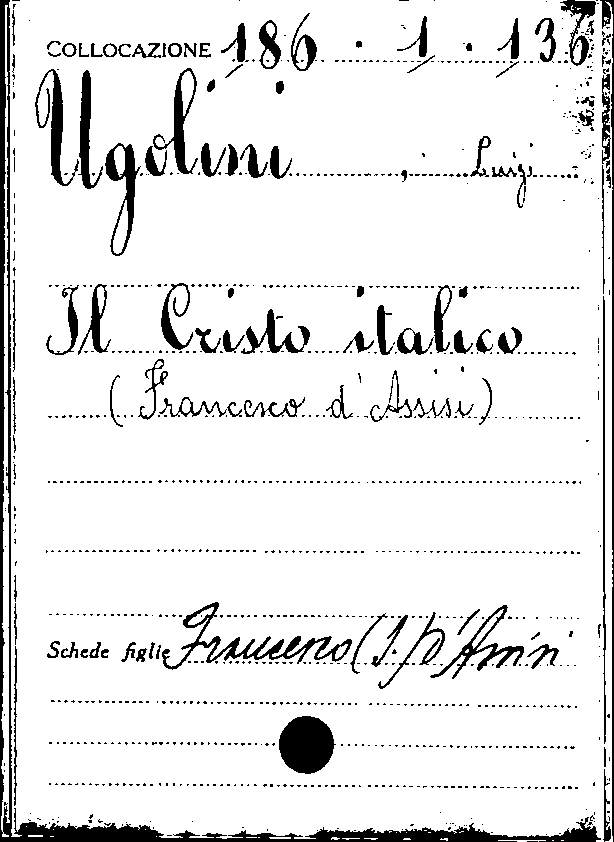 COLLOCAZIONE 186 . 1 . 136
Ugolini , Luigi
Il Cristo italico
(Francesco d'Assisi)
Schede figlie Francesco (S.) D'Assisi